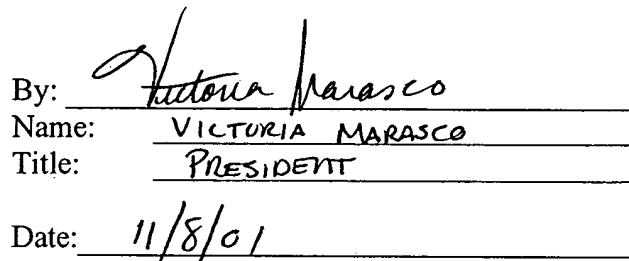 By: Victoria Marasco
Name: VICTORIA MARASCO
Title: PRESIDENT
Date: 11/8/01